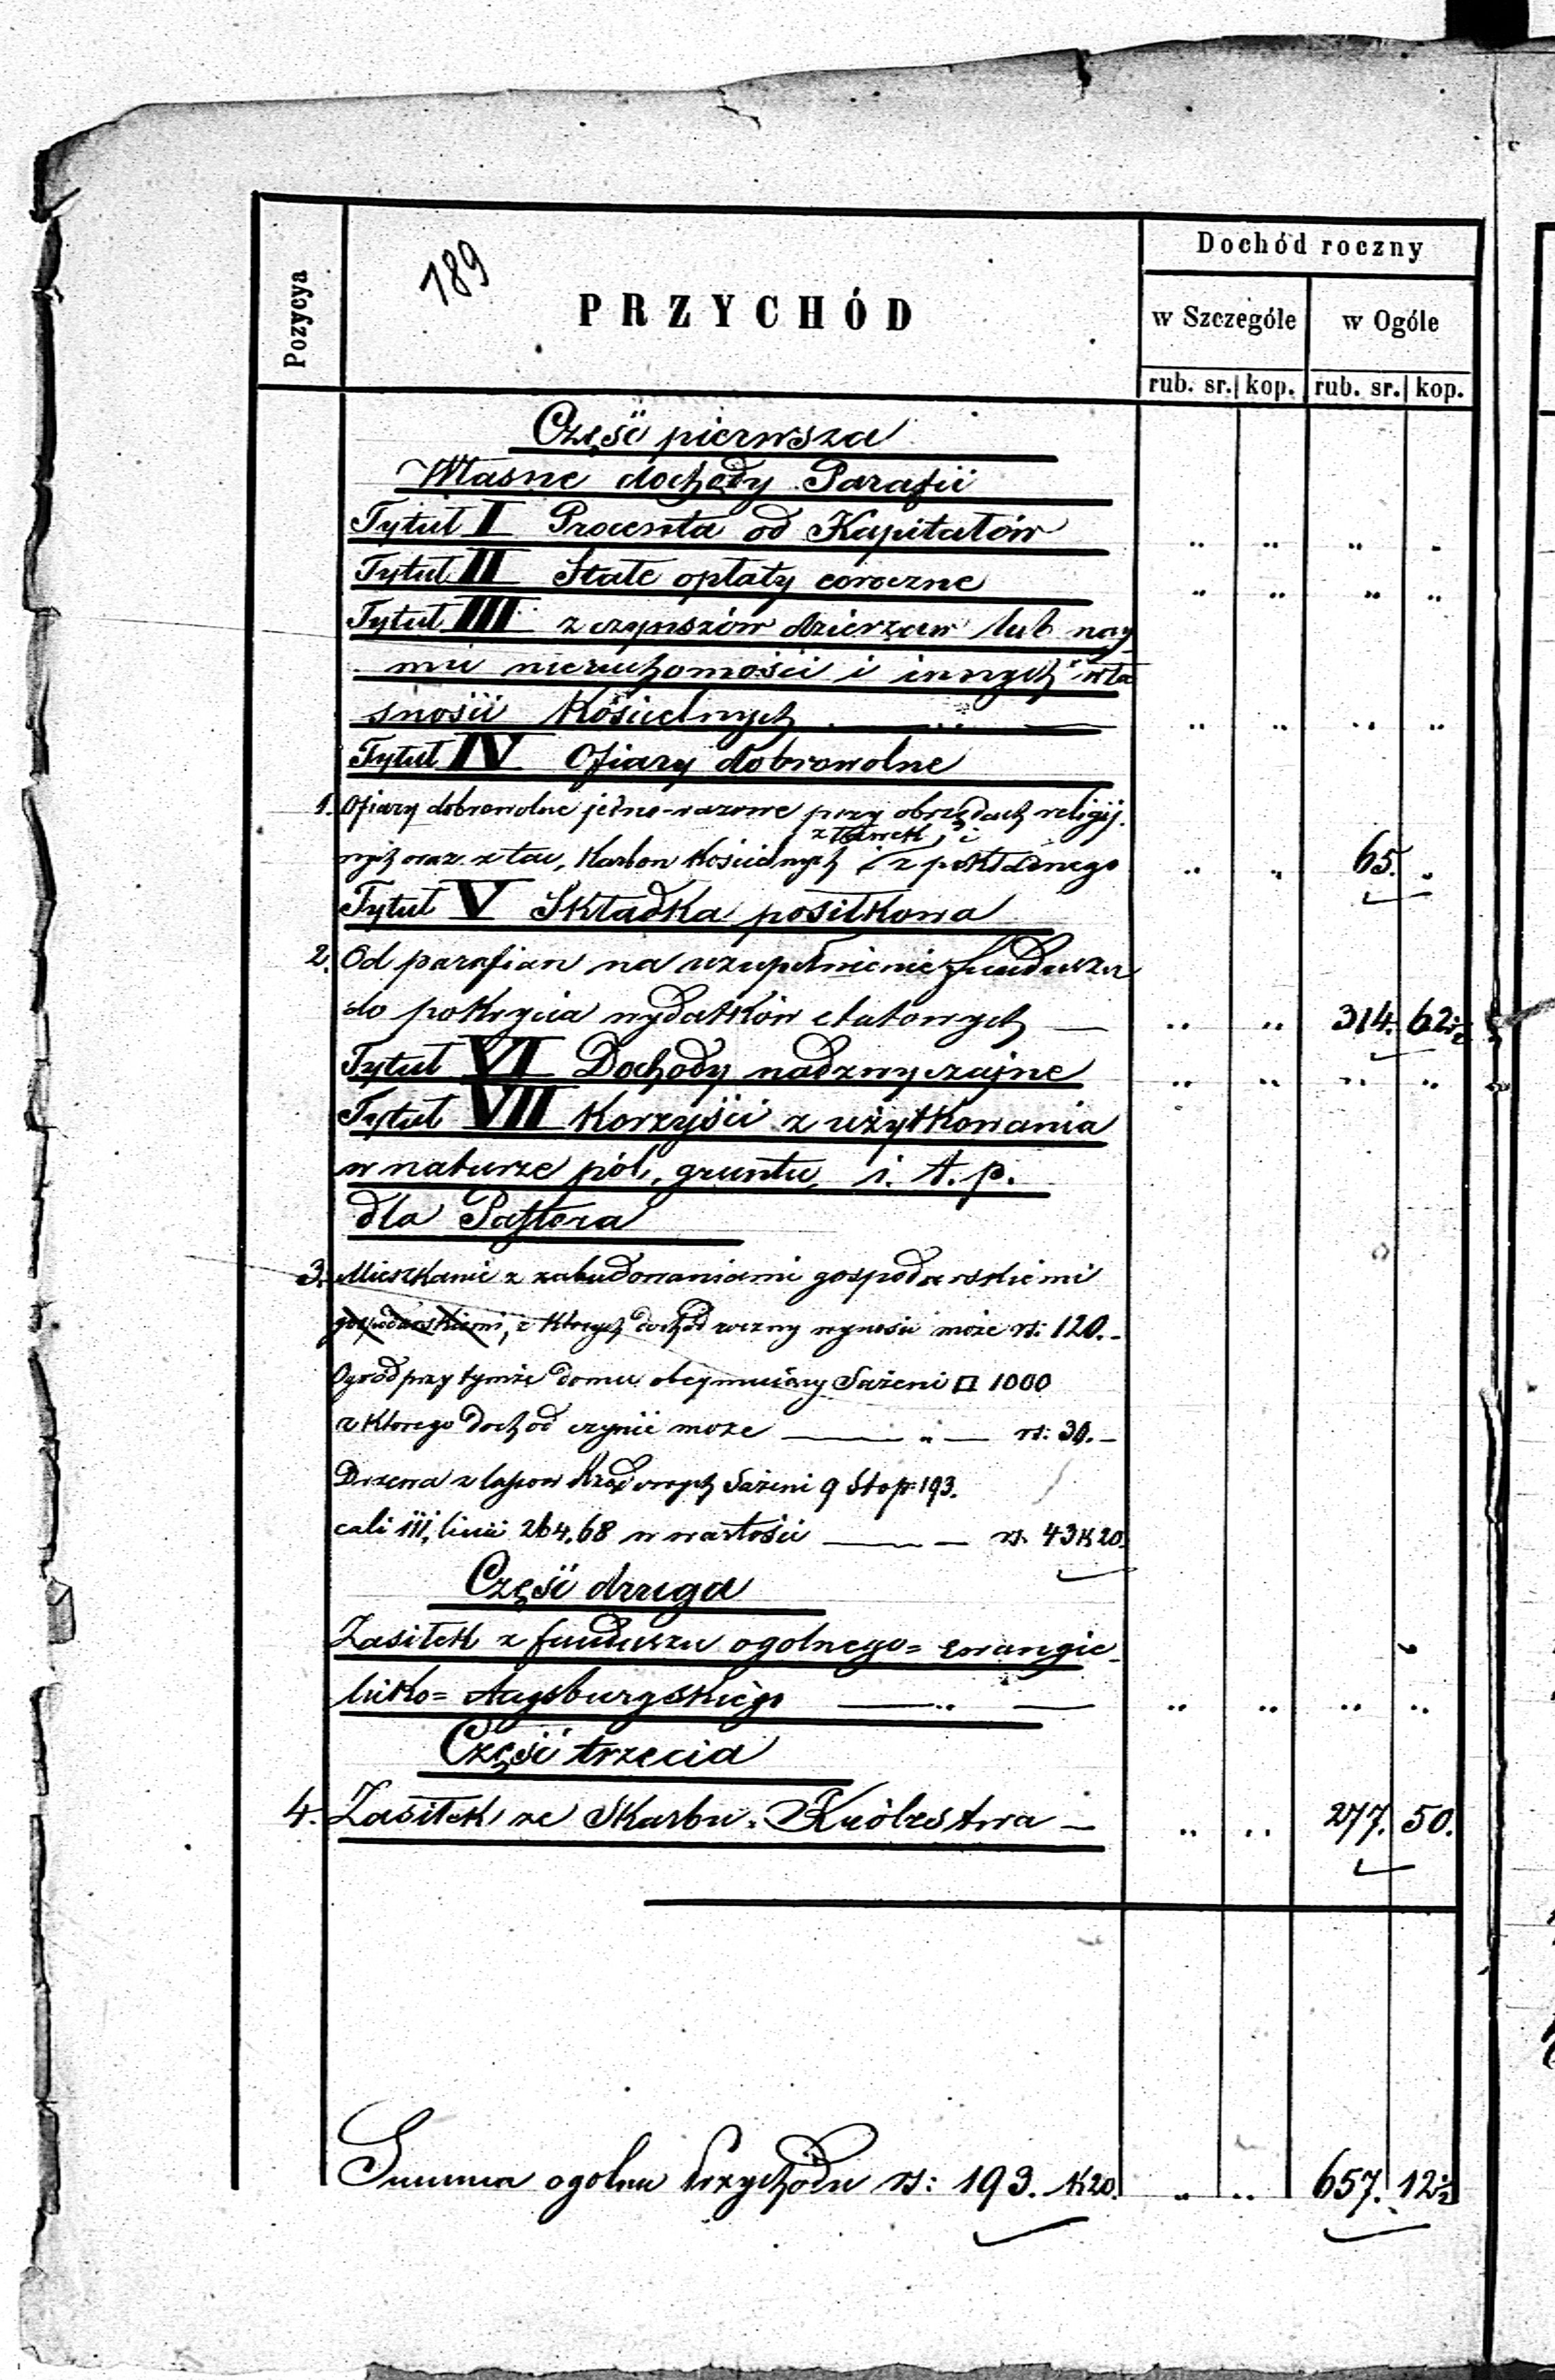 189
Pozycya
PRZYCHÓD
Dochód roczny
w Szczególe w Ogóle
rub. sr. kop. rub. sr. kop.
Część pierwsza
Własne dochody Parafii
Tytuł I Procenta od Kapitałów " " " "
Tytuł II Stałe opłaty coroczne " " " "
Tytuł III z czynszów dzierżaw lub nay
mu nieruchomości i innych wła
sności Kościelnych " " " "
Tytuł IV Ofiary dobrowolne
1. Ofiary dobrowolne jedno-razowe przy obrzędach religij.
z ławek, i
nych oraz z tac, Karbon Kościelnych z pokładnego " " 65. "
Tytuł V Składka posiłkowa
2. Od parafian na uzupełnienie funduszu
do pokrycia wydatków etatowych " " 314. 62½
Tytuł VI Dochody nadzwyczajne " " " "
Tytuł VII Korzyści z użytkowania
w naturze pól, gruntu, i. t. p.
dla Pastora
3. Mieszkanie z zabudowaniami gospodarskiemi
gospodarskiemi, z których dochód roczny wynosić może rs: 120.-
Ogród przy tymże domu obejmujący Sażeni □ 1000
z którego dochód czynić może " rs: 30.-
Drzewa z lasow Rządowych Sażeni 9 Stop. 193.
cali III, linii 264.68 w wartości rs. 43 k 20.
Część druga
Zasiłek z funduszu ogolnego= Ewangie-
licko= Augsburgskiego " " " " "
Część trzecia
4. Zasiłek ze Skarbu Królestwa - " " 277. 50.
Summa ogolna Przychodu rs: 193. k 20. " " 657. 12½